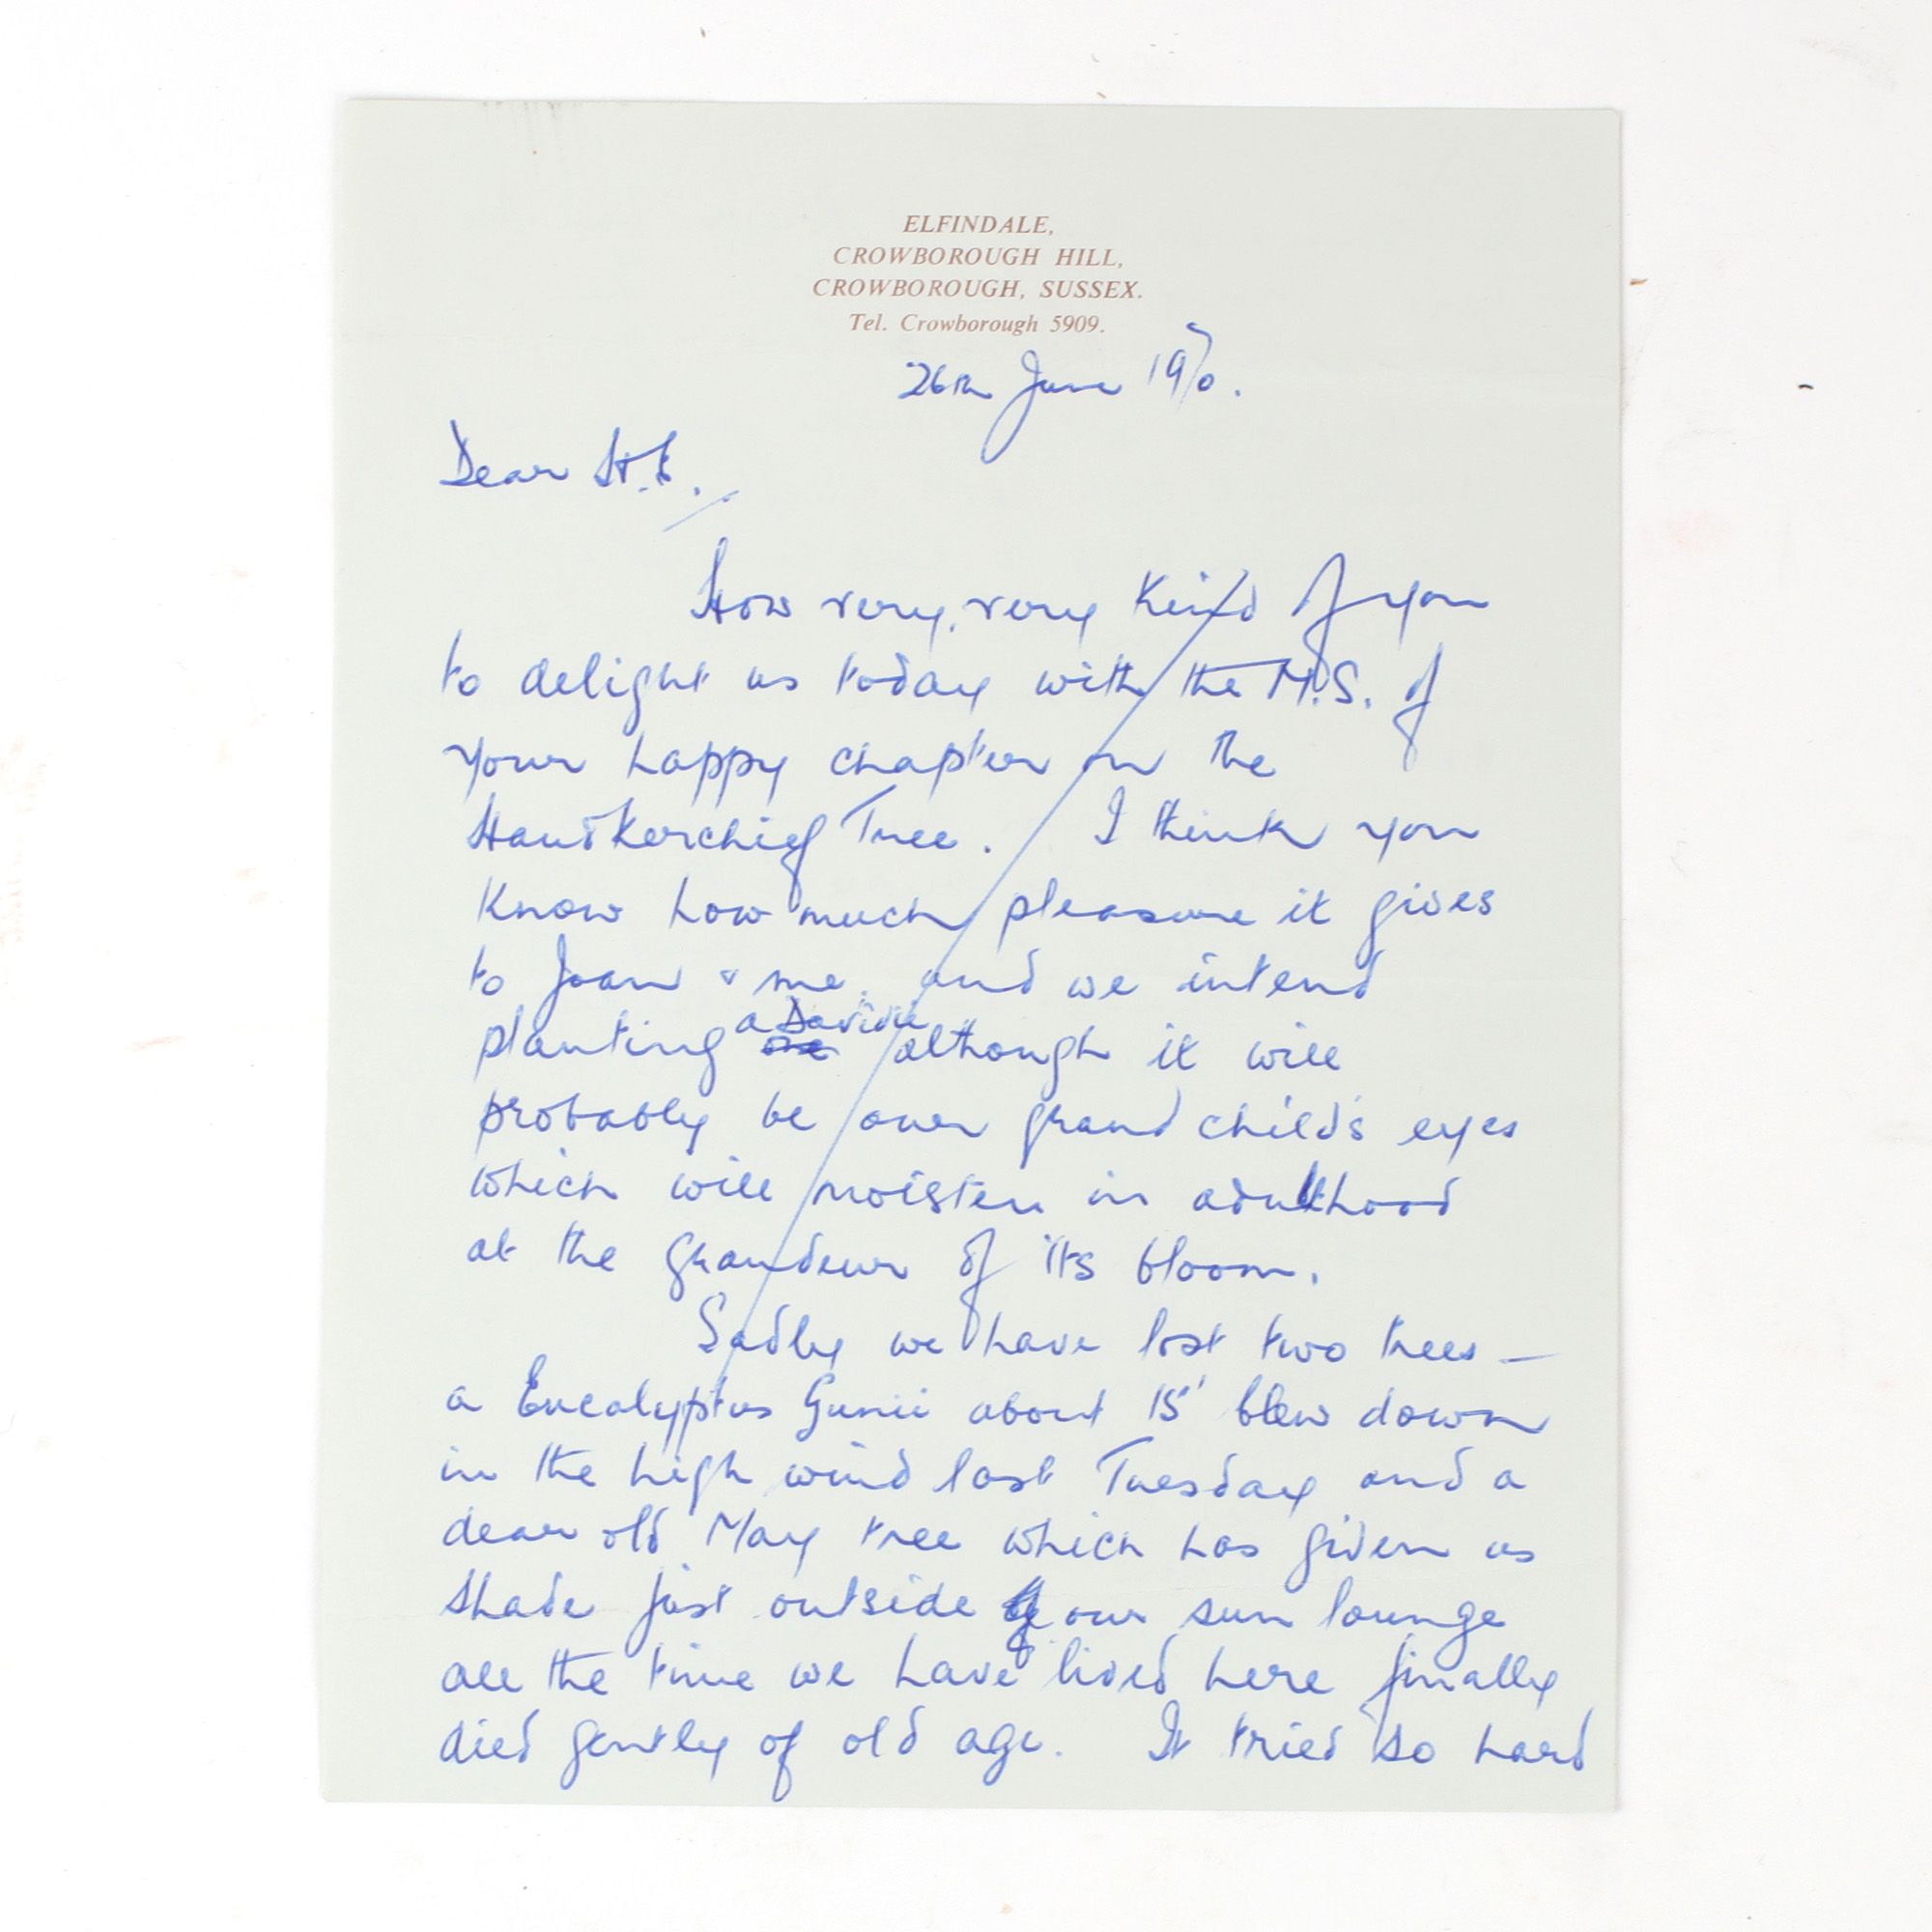 ELFINDALE,
CROWBOROUGH HILL,
CROWBOROUGH, SUSSEX.
Tel. Crowborough 5909.
26th June 1970.
Dear H.E.,
How very, very kind of you
to delight us today with the M.S. of
your happy chapter on the
Handkerchief Tree. I think you
know how much pleasure it gives
to Joan & me, and we intend
planting a Davidia although it will
probably be our grandchild's eyes
which will moisten in adulthood
at the grandeur of its bloom.
Sadly we have lost two trees –
a Eucalyptus Gunii about 15' blew down
in the high wind last Tuesday and a
dear old May tree which has given us
shade just outside our sun lounge
all the time we have lived here finally
died gently of old age. It tried so hard